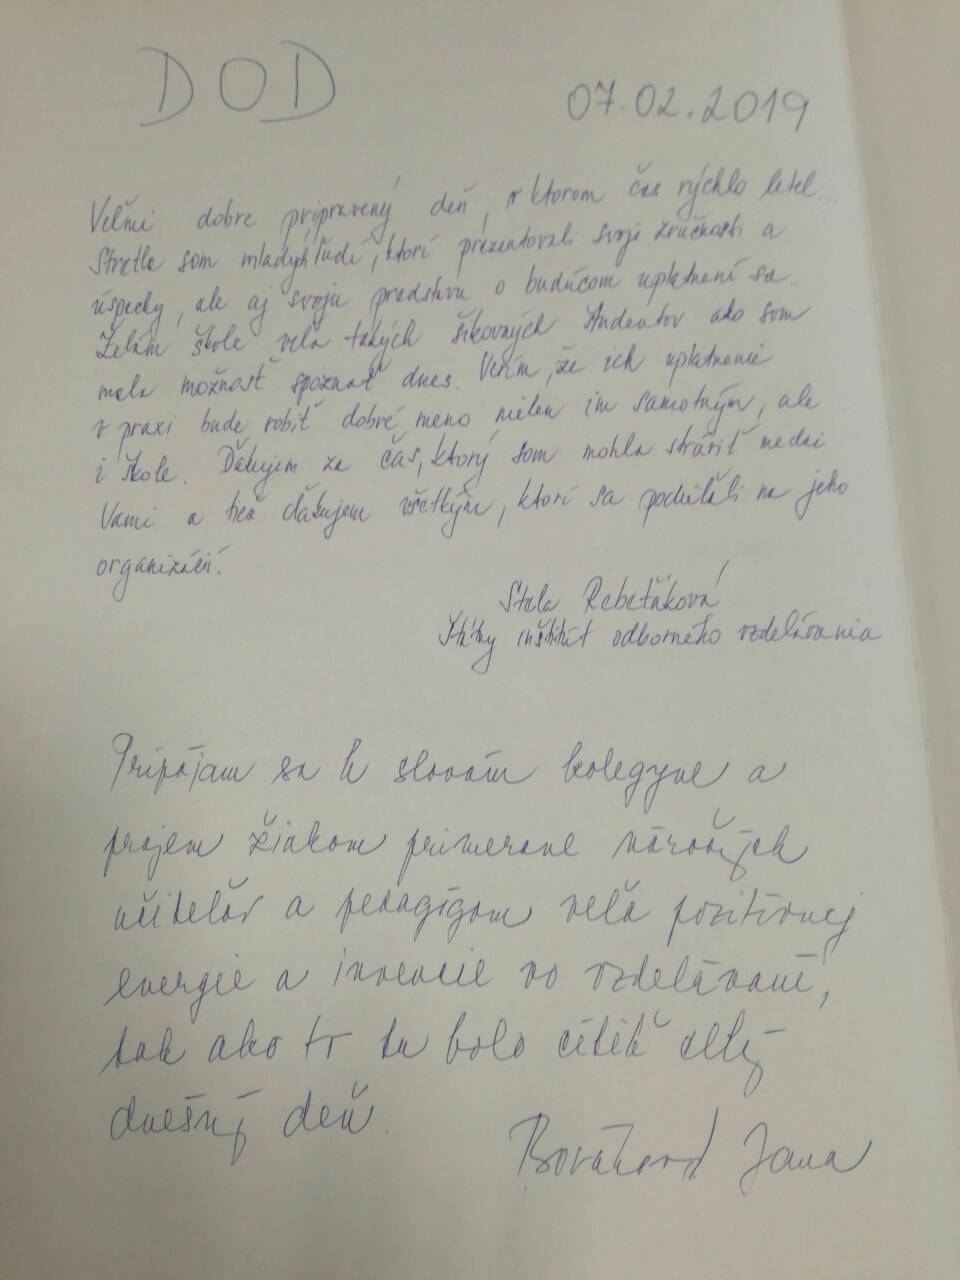 DOD
07.02.2019
Veľmi dobre pripravený deň, v ktorom čas rýchlo letel...
Stretla som mladých ľudí, ktorí prezentovali svoje zručnosti a
úspechy, ale aj svoju predstavu o budúcom uplatnení sa.
Želám škole veľa takých šikovných študentov ako som
mala možnosť spoznať dnes. Verím, že ich uplatnenie
v praxi bude robiť dobré meno nielen im samotným, ale
i škole. Ďakujem za čas, ktorý som mohla stráviť medzi
Vami a tiež ďakujem všetkým, ktorí sa podieľali na jeho
organizácií.
Stela
Štátny inštitút odborného vzdelávania
Pripájam sa k slovám kolegyne a
prajem žiakom primerane náročných
učiteľov a pedagógom veľa pozitívnej
energie a invencie vo vzdelávaní,
tak ako to tu bolo cítiť celý
dnešný deň.
Jana